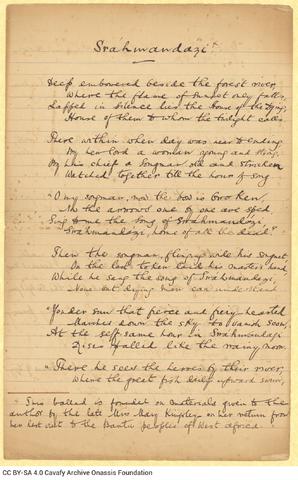 Srahmandazi*
Deep embowered beside the forest river,
Where the flame of Sunset only falls,
Lapped in silence lies the House of the Dying,
House of them to whom the twilight calls.
There within when day was near to ending,
By her lord a woman young and strong,
By his chief a songman old and stricken
Watched together till the hour of song.
"O my songman, now the bow is broken,
Now the arrows one by one are sped,
Sing to me the song of Srahmandazi
Srahmandazi, home of all the dead."
Then the songman, flinging wide his songnet,
On the last token laid his master's hand,
While he sang the song of Srahmandazi,
None but dying men can understand.
"Yonder sun that fierce and fiery-hearted
Marches down the sky to vanish soon,
At the self-same hour in Srahmandazi
Rises pallid like the rainy moon.
"There he sees the heroes by their river,
Where the great fish daily upward swim;
* This ballad is founded on materials given to the
author by the late Miss Mary Kingsley on her return from
her last visit to the Bantu peoples of West Africa.
CC BY-SA 4.0 Cavafy Archive Onassis Foundation